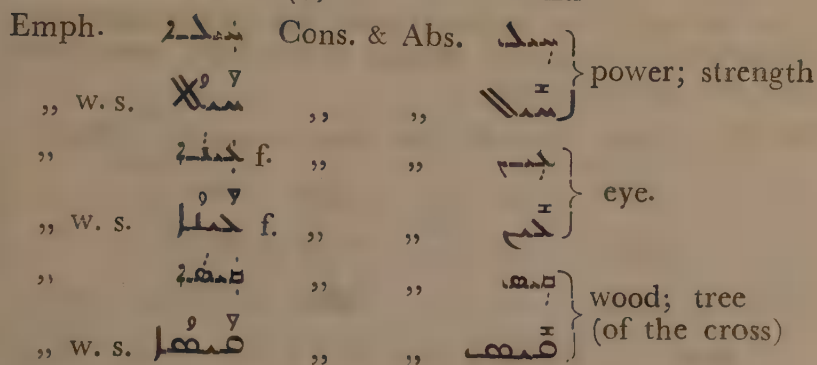 Emph. ܚܲܝܠܵܐ Cons. & Abs. ܚܹܝܠ
„ w. s. ܚܰܝܠܳܐ „ „ ܚܺܝܠ power; strength
„ ܥܲܝܢܵܐ f. „ „ ܥܹܝܢ
„ w. s. ܥܰܝܢܳܐ f. „ „ ܥܺܝܢ eye.
„ ܩܲܝܣܵܐ „ „ ܩܹܝܣ wood; tree
„ w. s. ܩܰܝܣܳܐ „ „ ܩܺܝܣ (of the cross)